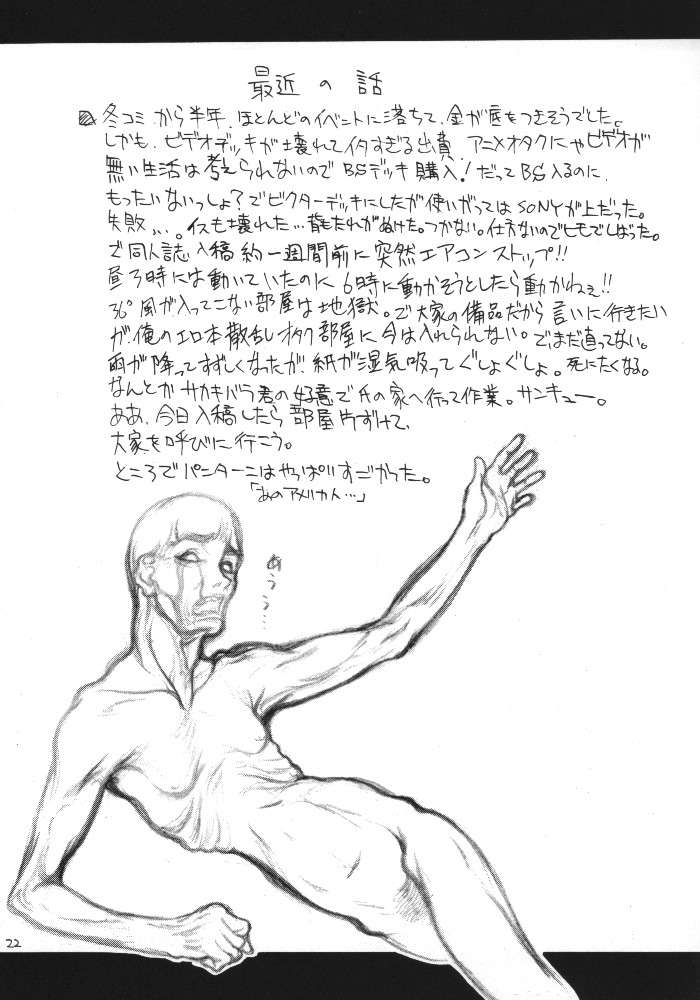 最近の話
冬コミから半年、ほとんどのイベントに落ちて、金が底もつきそうでした。
しかも、ビデオデッキが壊れてイタすぎる出費、アニメオタクにゃビデオが
無い生活は考えられないのでBSデッキ購入！だってBS入るのに、
もったいないっしょ？でビクターデッキにしたが使いがってはSONYが上だった。
失敗、、、。イスも壊れた…背もたれがぬけた。つかない。仕方ないのでヒモでしばった。
で同人誌入稿約一週間前に突然エアコンストップ!!
昼3時には動いていたのに6時に動かそうとしたら動かねぇ!!
36°風が入ってこない部屋は地獄。で大家の備品だから言いに行きたい
が、俺のエロ本散乱オタク部屋に今は入れられない。でまだ直ってない。
雨が降ってすずしくなったが、紙が湿気吸ってぐしょぐしょ。死にたくなる。
なんとかサカキバラ君の好意で氏の家へ行って作業。サンキュー。
ああ、今日入稿したら部屋片ずけて、
大家を呼びに行こう。
ところでパンターニはやっぱりすごかった。
「あのアメリカ人…」
あうう…
22